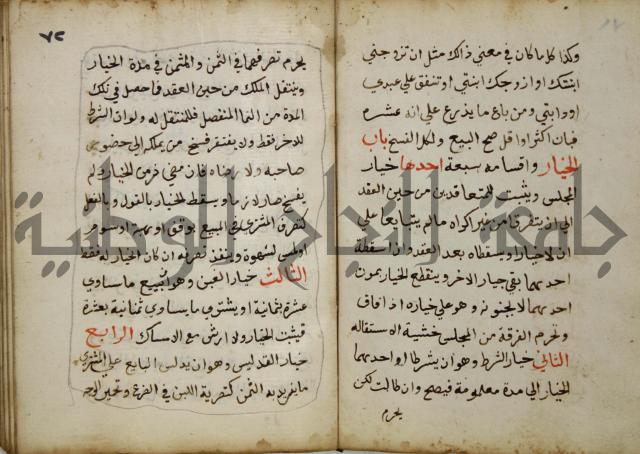 وكذا كل ما كان في معنى ذالك مثل ان تزوجني
ابنتك او ازوجك ابنتي او تنفق على عبدي
او دابتي ومن باع ما يذرع على انه عشره
فبان اكثر او اقل صح البيع ولكل الفسخ باب
الخيار واقسامه سبعة احدها خيار
المجلس ويثبت للمتعاقدين من حين العقد
الى ان يتفرقا من غير اكراه ما لم يتبايعا على
ان لا خيار او يسقطاه بعد العقد وان اسقطه
احدهما بقي خيار الاخر وينقطع الخيار بموت
احدهما لا بجنونه وهو على خياره اذا افاق
وتحرم الفرقة من المجلس خشية الاستقاله
الثاني خيار الشرط وهو ان يشرطا او احدهما
الخيار الى مدة معلومة فيصح وان طالت لكن
يحرم
٧٢
يحرم تصرفهما في الثمن والمثمن في مدة الخيار
وينتقل الملك من حين العقد فما حصل في تلك
المدة من النما المنفصل فللمنتقل له ولو ان الشرط
للاخر فقط ولا يفتقر فسخ من يملكه الى حضور
صاحبه ولا رضاه فان مضى زمن الخيار ولم
يفسخ صار لازما ويسقط الخيار بالقول وبالفعل
كتصرف المشتري في المبيع بوقف او هبة او سوم
او لمس لشهوة وينفذ تصرفه ان كان الخيار له فقط
الثالث خيار الغبن وهو ان يبيع ما يساوي
عشرة بثمانية او يشتري ما يساوي ثمانية بعشرة
فيثبت الخيار ولا ارش مع الامساك الرابع
خيار التدليس وهو ان يدلس البايع على المشتري
ما يزيد به الثمن كتصرية اللبن في الضرع وتحمير الوجه
جامعة النجاح الوطنية